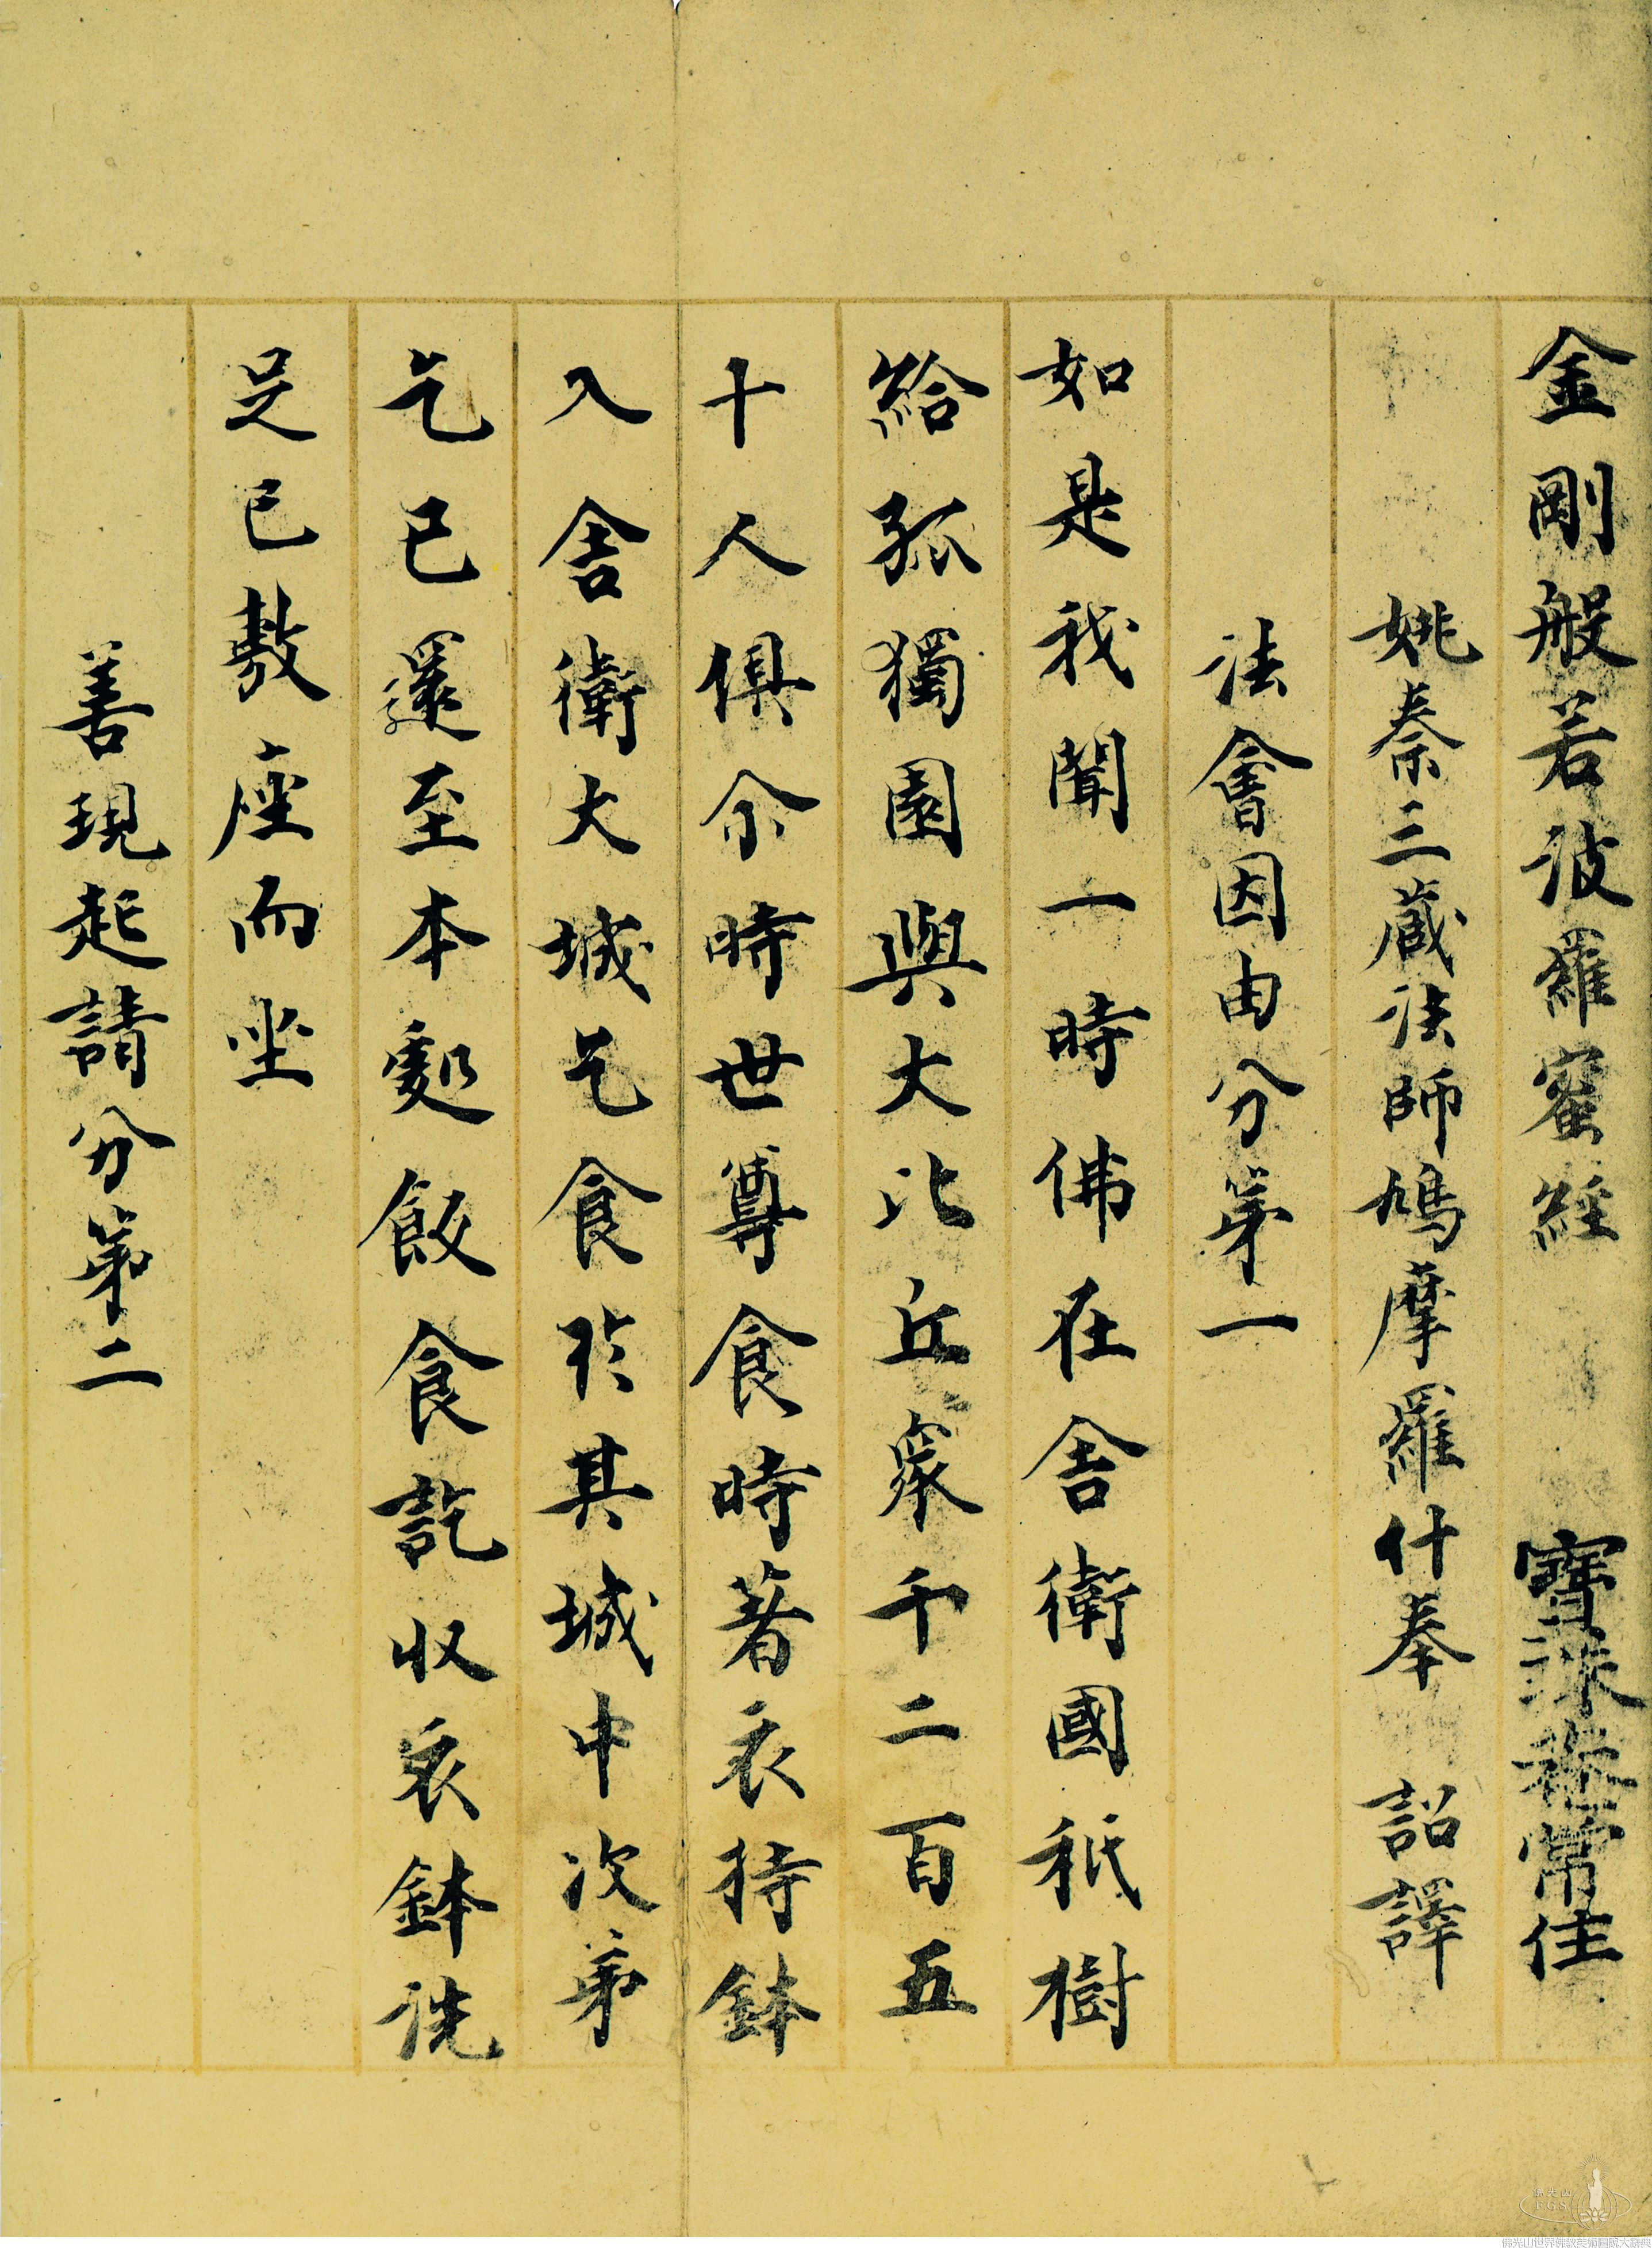 金剛般若波羅蜜經 寶常住
姚秦三藏法師鳩摩羅什奉 詔譯
法會因由分第一
如是我聞一時佛在舍衛國祇樹
給孤獨園與大比丘眾千二百五
十人俱尒時世尊食時著衣持鉢
入舍衛大城乞食於其城中次第
乞已還至本處飯食訖收衣鉢洗
足已敷座而坐
善現起請分第二
佛光山
FGS
佛光山世界佛教美術圖說大辭典